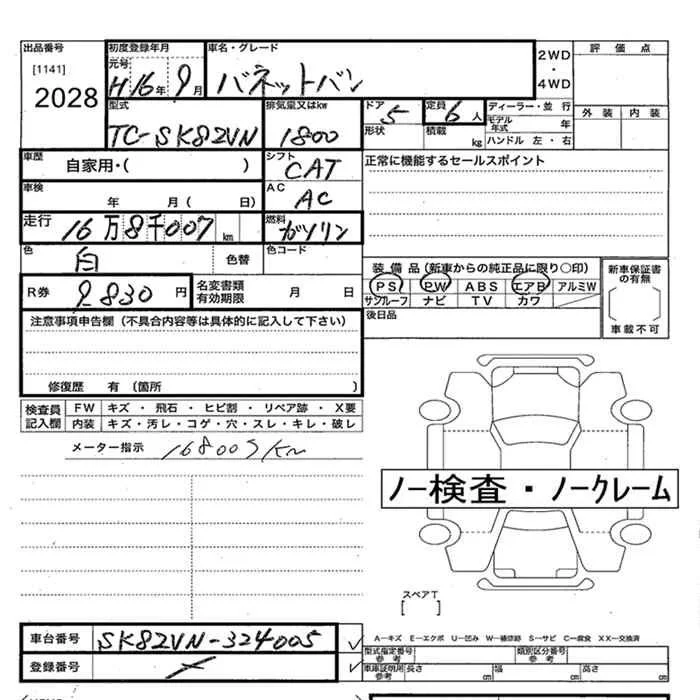 出品番号
[1141]
2028
初度登録年月
元号
H16年9月
車名・グレード
バネットバン
2WD
・
4WD
評価点
外装 内装
型式
TC-SK82VN
排気量又はkw
1800
ドア
5
形状
定員
6人
積載
kg
ディーラー・並行
モデル年式 年
ハンドル 左・右
車歴
自家用・( )
シフト
CAT
車検
年 月( 日)
AC
AC
走行
16万8千007km
燃料
ガソリン
色
白
色替
色コード
R券
9830円
名変書類有効期限 月 日
正常に機能するセールスポイント
装備品(新車からの純正品に限り○印)
PS PW ABS エアB アルミW
サンルーフ ナビ TV カワ
後日品
新車保証書の有無
車載不可
注意事項申告欄(不具合内容等は具体的に記入して下さい)
修復歴 有 (箇所 )
検査員記入欄
FW キズ・飛石・ヒビ割・リペア跡・X要
内装 キズ・汚レ・コゲ・穴・スレ・キレ・破レ
メーター指示 168009km
ノー検査・ノークレーム
スペアT
[ ]
車台番号 SK82VN-324005
登録番号
A-キズ E-エクボ U-凹み W-補修跡 S-サビ C-腐食 XX-交換済
型式指定番号 参考
類別区分番号 参考
車庫証明用 参考 長さ cm 幅 cm 高さ cm